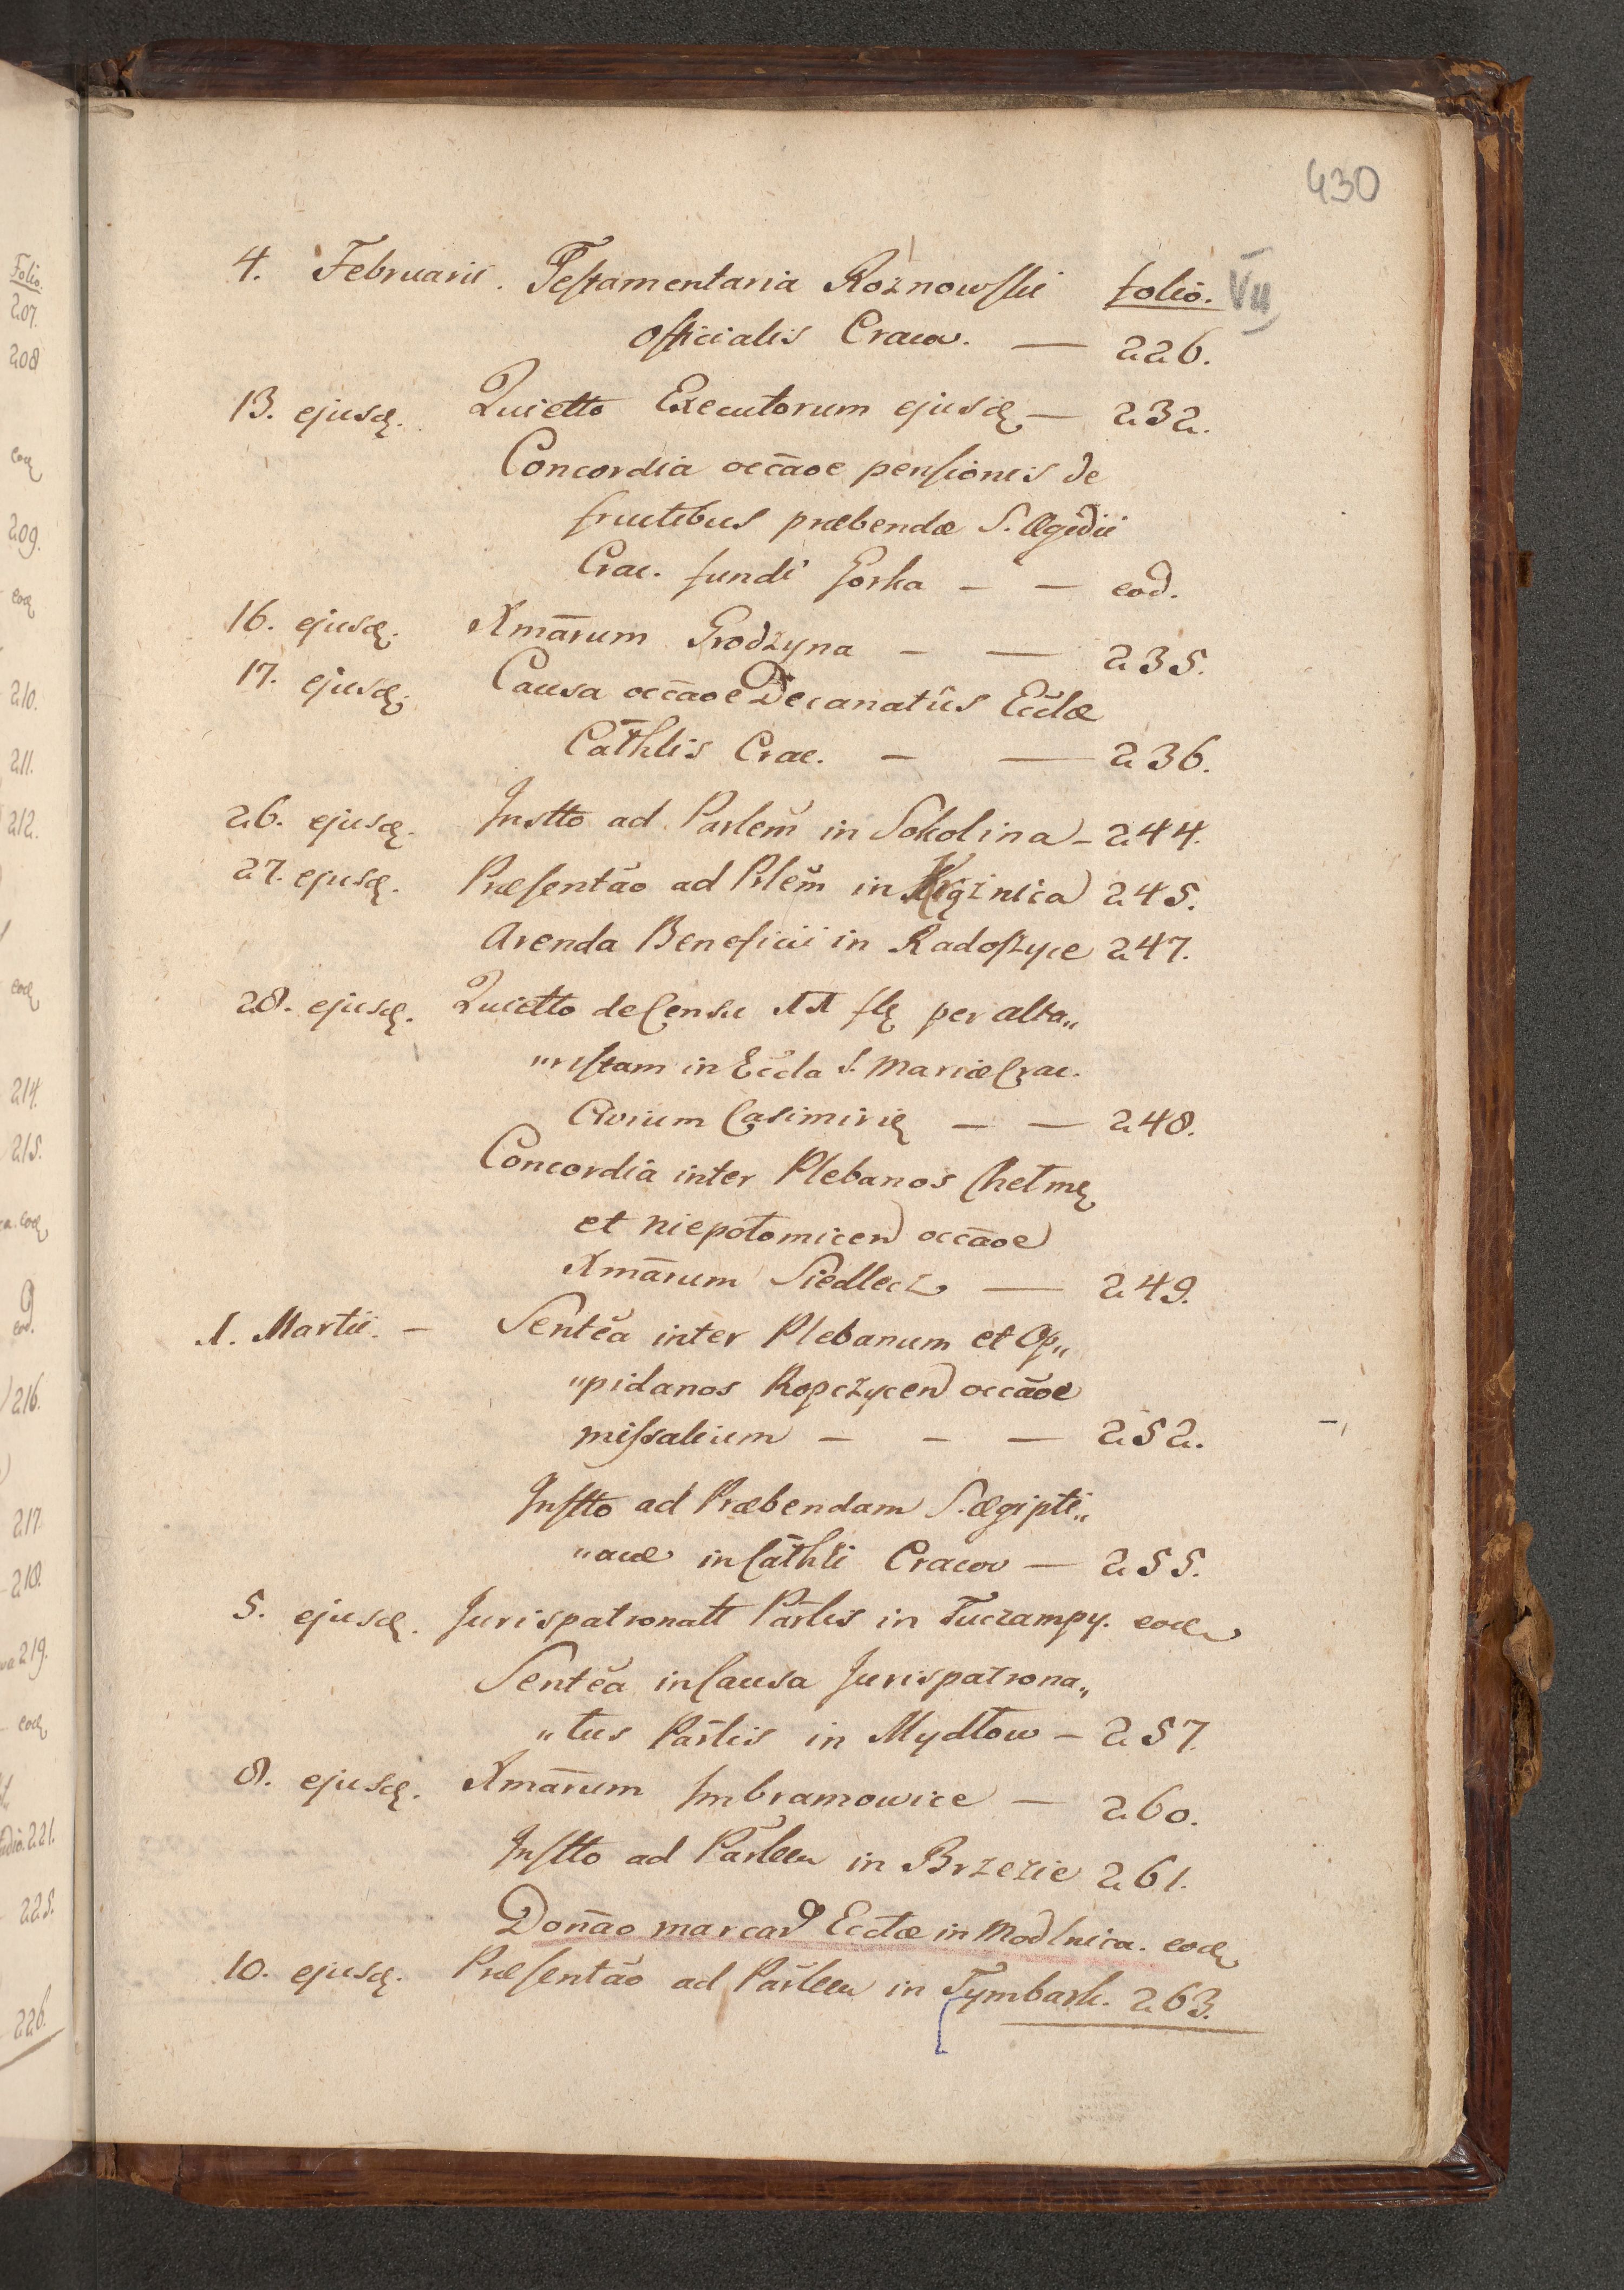 430
4. Februarii. Testamentaria Roznowski folio. VII
Officialis Cracov. — 226.
13. ejusd. Quietto Executorum ejusd — 232.
Concordia occãoe pensionis de
fructibus præbendæ S. Ægidii
Crac. fundi Gorka — — eod.
16. ejusd. Xmãrum Grodzyna — — 235.
17. ejusd. Causa occãoe Decanatûs Ecclæ
Cathlis Crac. — — 236.
26. ejusd. Instto ad Parlem in Sokolina — 244.
27. ejusd. Præsentão ad Plem in Xiąznica 245.
Arenda Beneficii in Radoszyce 247.
28. ejusd. Quietto de Censu fl per alta„
„ristam in Eccla S. Mariæ Crac.
Civium Casimirie — — 248.
Concordia inter Plebanos Chełme
et Niepołomicen occãoe
Xmãrum Siedlecz — 249.
1. Martii. — Sentea inter Plebanum et Op„
„pidanos Ropczycen occãoe
missalium — — — 252.
Instto ad Præbendam S. Ægipti„
„acæ in Cathli Cracov — 255.
5. ejusd. Jurispatronatt Parlis in Tuczampy. eod
Sentea in Causa Jurispatrona„
„tus Parlis in Mydłow — 257.
8. ejusd. Xmãrum Imbramowice — 260.
Instto ad Parlem in Brzezie 261.
Donão marcar Ecclæ in Modlnica. eod
10. ejusd. Præsentão ad Parlem in Tymbark. 263.
Folio.
207.
208
eod
209.
eod
210.
211.
212.
eod
214.
215.
eod
eod.
216.
217
218.
219.
eod
221.
225.
226.